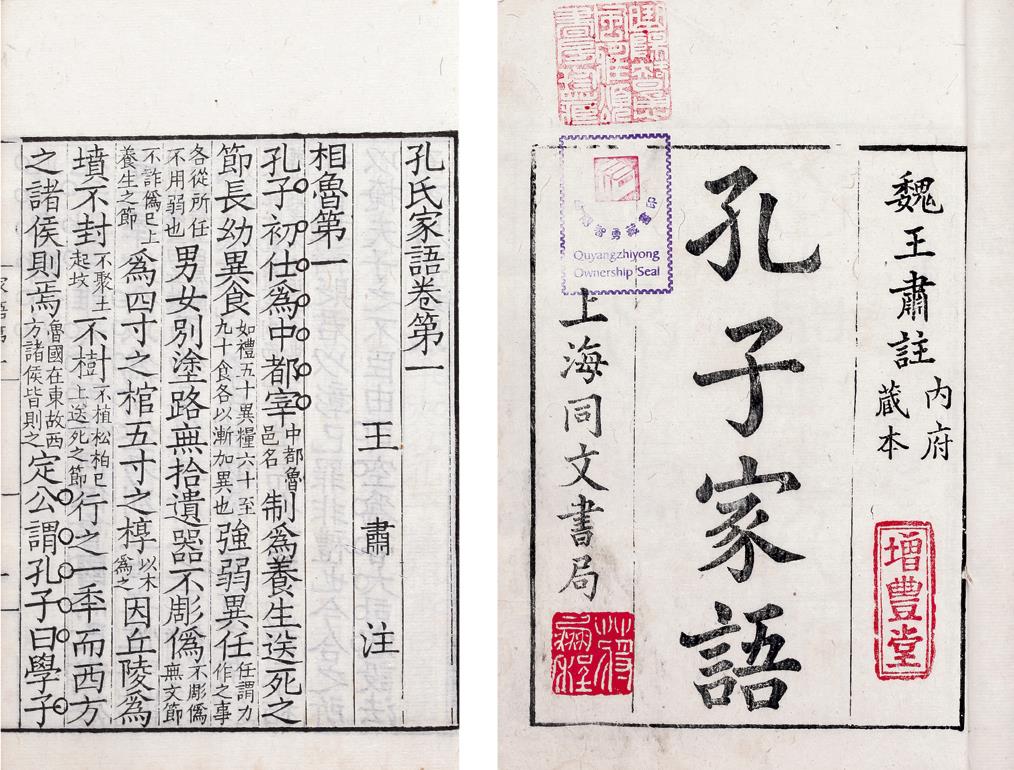 魏王肅註
内府
藏本
孔子家語
上海同文書局
增豐堂
Quyangzhiyong
Ownership Seal
孔氏家語卷第一
王肅注
相魯第一
孔子初仕爲中都宰中都魯邑名制爲養生送死之
節長幼異食如禮五十異糧六十至九十食各以漸加異也強弱異任任謂力作之事
各從所任不用弱也男女別塗路無拾遺器不彫僞不彫僞無文節
不詐僞已上養生之節爲四寸之棺五寸之椁以木爲之因丘陵爲
墳不封不聚土起坟不樹不植松柏已上送死之節行之一秊而西方
之諸侯則焉魯國在東故西方諸侯皆則之定公謂孔子曰學子